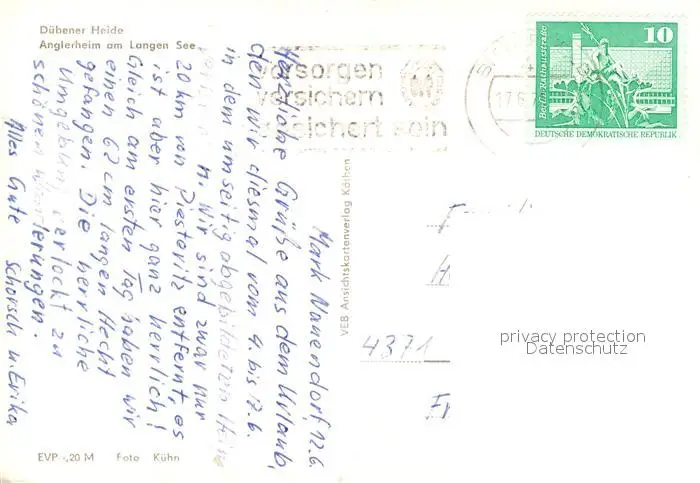 Dübener Heide
Anglerheim am Langen See
Mark Nauendorf, 12.6.
Herzliche Grüße aus dem Urlaub,
den wir diesmal vom 4. bis 17.6.
in dem umseitig abgebildeten Heim
Wir sind zwar nur
20 km von Piesteritz entfernt, es
ist aber hier ganz herrlich!
Gleich am ersten Tag haben wir
einen 62 cm langen Hecht
gefangen. Die herrliche
Umgebung verlockt zu
schönen Wanderungen.
Alles Gute Schorsch u. Erika
EVP -,20 M Foto Kühn
VEB Ansichtskartenverlag Köthen
vorsorgen
versichern
gesichert sein
17.6.
10
Berlin, Rathausstraße
DEUTSCHE DEMOKRATISCHE REPUBLIK
4371
privacy protection
Datenschutz